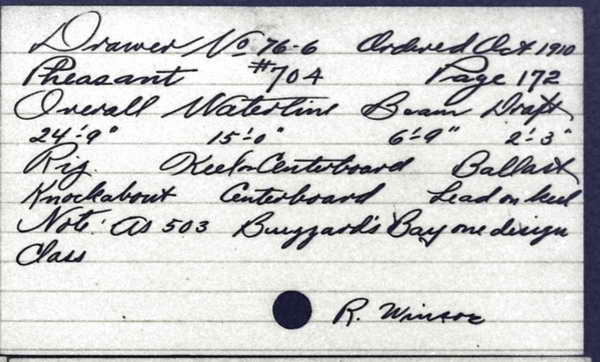 Drawer No 76-6 Ordered Oct 1910
Pheasant #704 Page 172
Overall Waterline Beam Draft
24'-9" 15'-0" 6'-9" 2'-3"
Rig. Keel or Centerboard Ballast
Knockabout Centerboard Lead on keel
Note: As 503 Buzzard's Bay one design
Class
R. Winsor